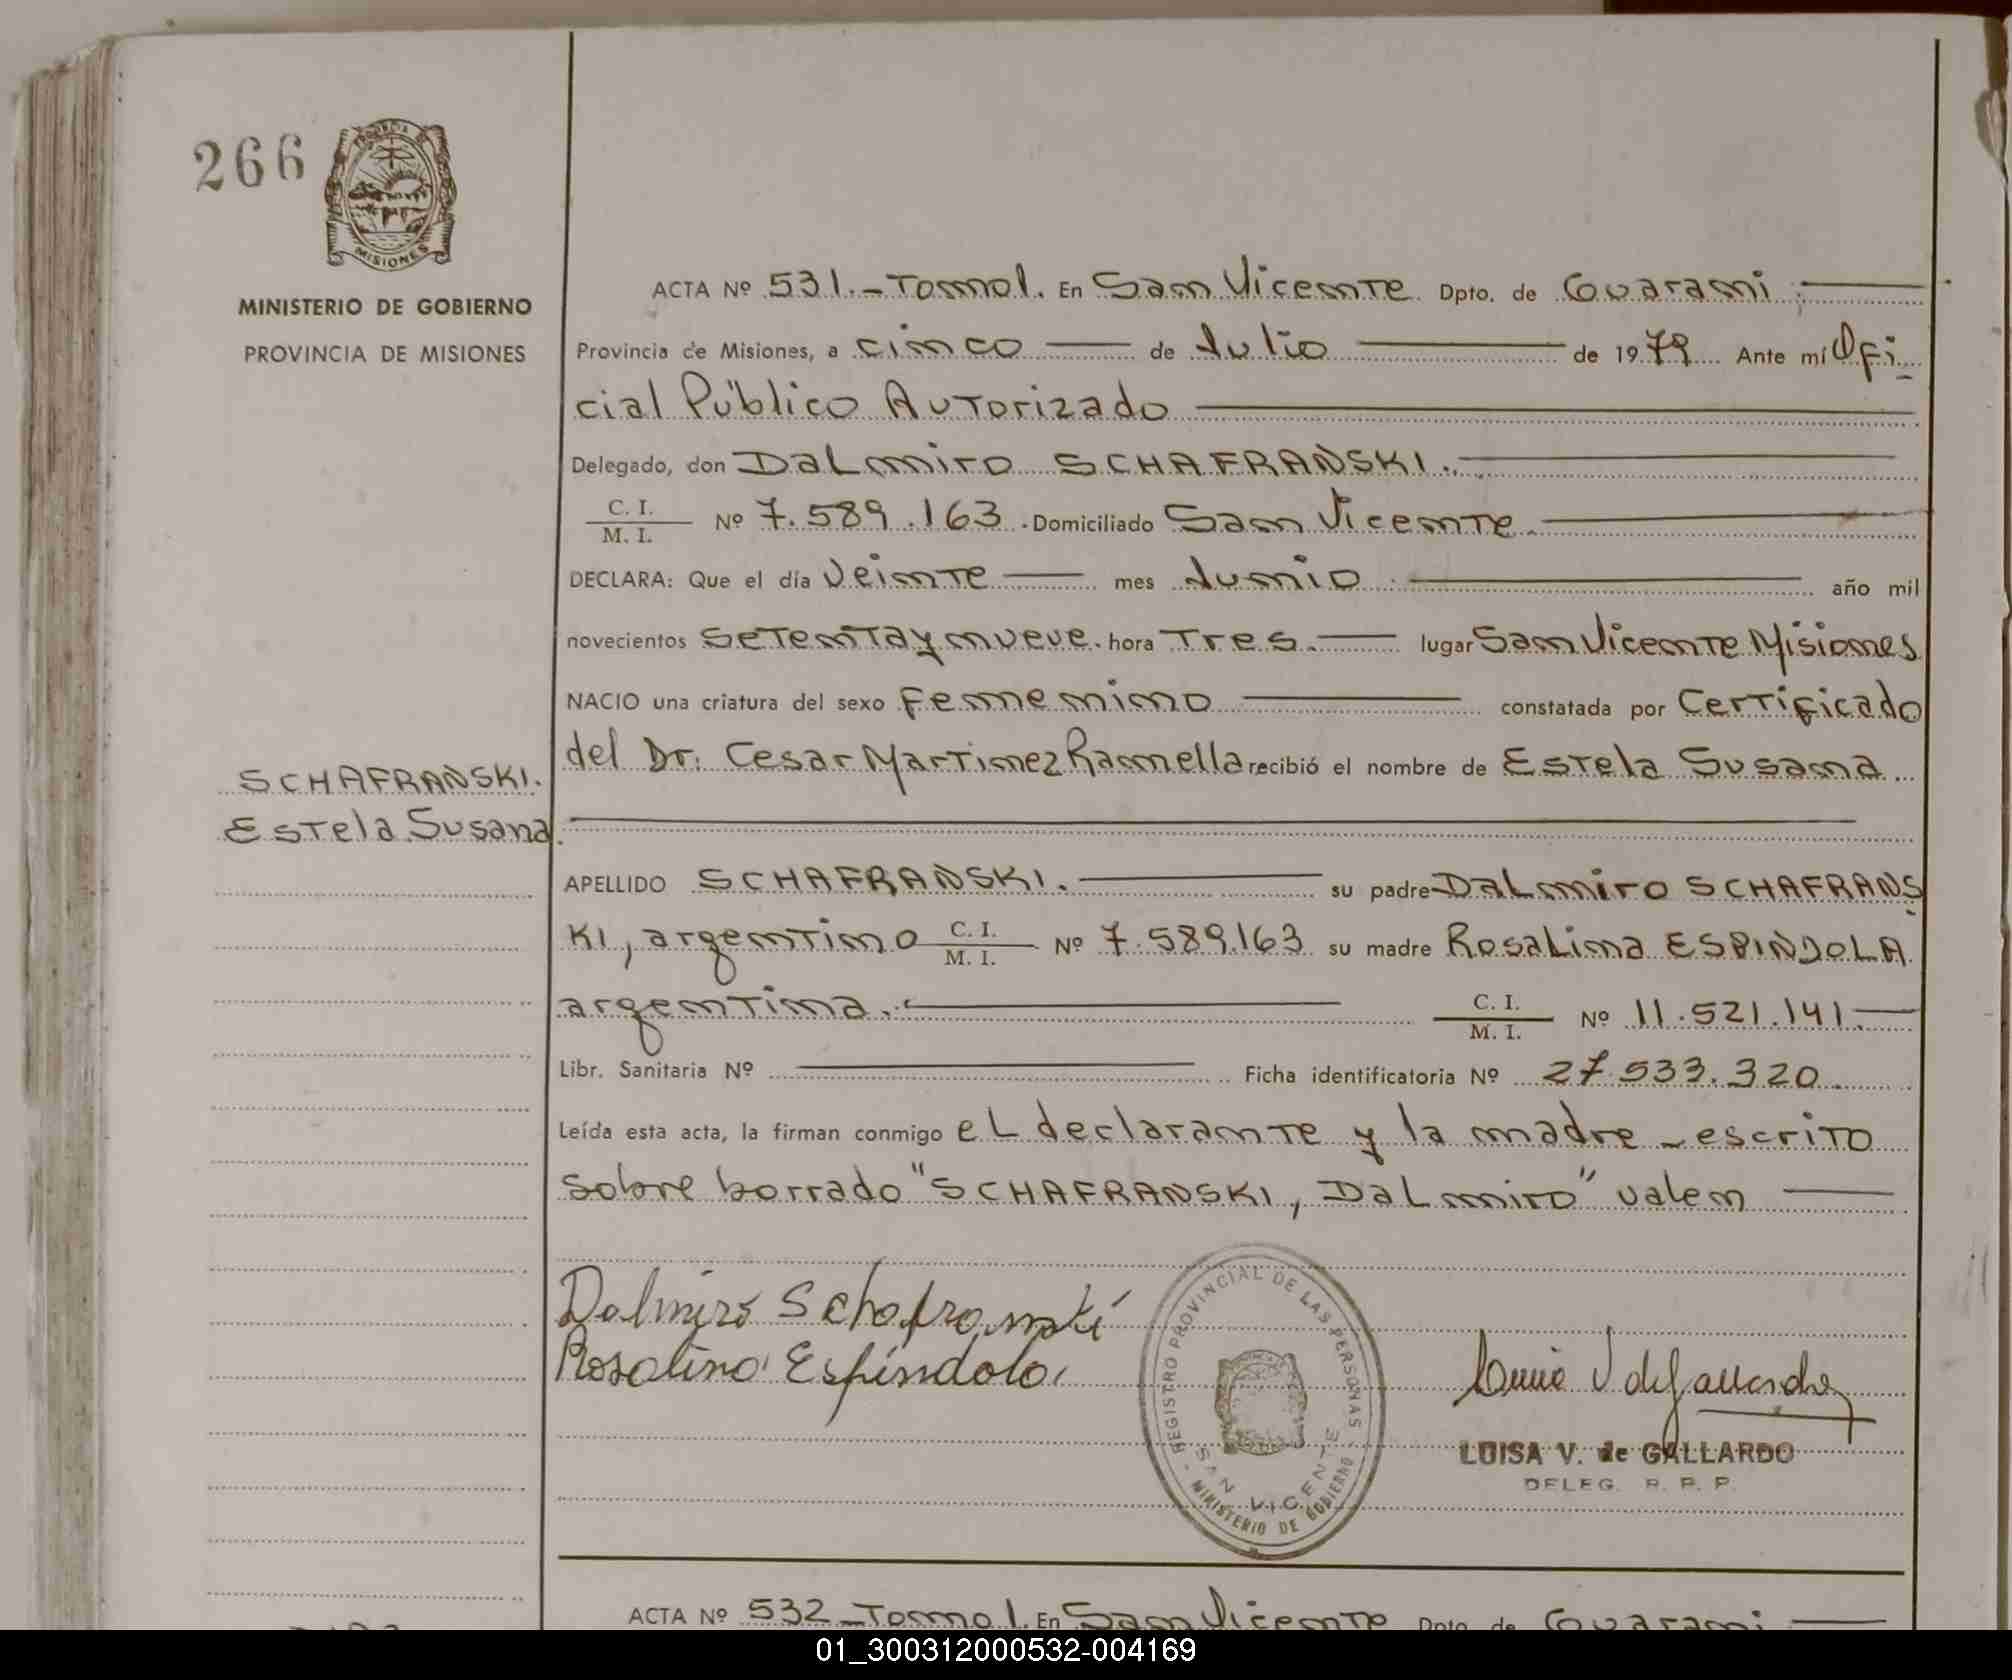 266
PROVINCIA DE
MISIONES
MINISTERIO DE GOBIERNO
PROVINCIA DE MISIONES
ACTA Nº 531.-Tomo1. En San Vicente Dpto. de Guarani,
Provincia de Misiones, a cinco de Julio de 1979 Ante mí Ofi
cial Público Autorizado
Delegado, don Dalmiro SCHAFRANSKI.
C. I.
M. I. Nº 7.589.163. Domiciliado San Vicente.
DECLARA: Que el día Veinte mes Junio año mil
novecientos setenta y nueve. hora Tres. lugar San Vicente Misiones
NACIO una criatura del sexo femenino constatada por Certificado
del Dr. Cesar Martinez Ramella recibió el nombre de Estela Susana
SCHAFRANSKI.
Estela Susana.
APELLIDO SCHAFRANSKI. su padre Dalmiro SCHAFRANS
KI, argentino C. I.
M. I. Nº 7.589.163 su madre Rosalina ESPINDOLA
argentina. C. I.
M. I. Nº 11.521.141.
Libr. Sanitaria Nº Ficha identificatoria Nº 27.533.320.
Leída esta acta, la firman conmigo el declarante y la madre - escrito
sobre borrado "SCHAFRANSKI, Dalmiro" valen
Dalmiro Schafranski
Rosalina Espíndola
REGISTRO PROVINCIAL DE LAS PERSONAS
SAN VICENTE
MINISTERIO DE GOBIERNO
Luisa V de Gallardo
LUISA V. de GALLARDO
DELEG. R. P. P.
ACTA Nº 532-Tomo1. En San Vicente Dpto. de Guarani
01_300312000532-004169